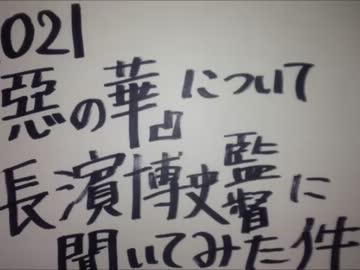 021
惡の華』について
長濱博史監督に
聞いてみた件